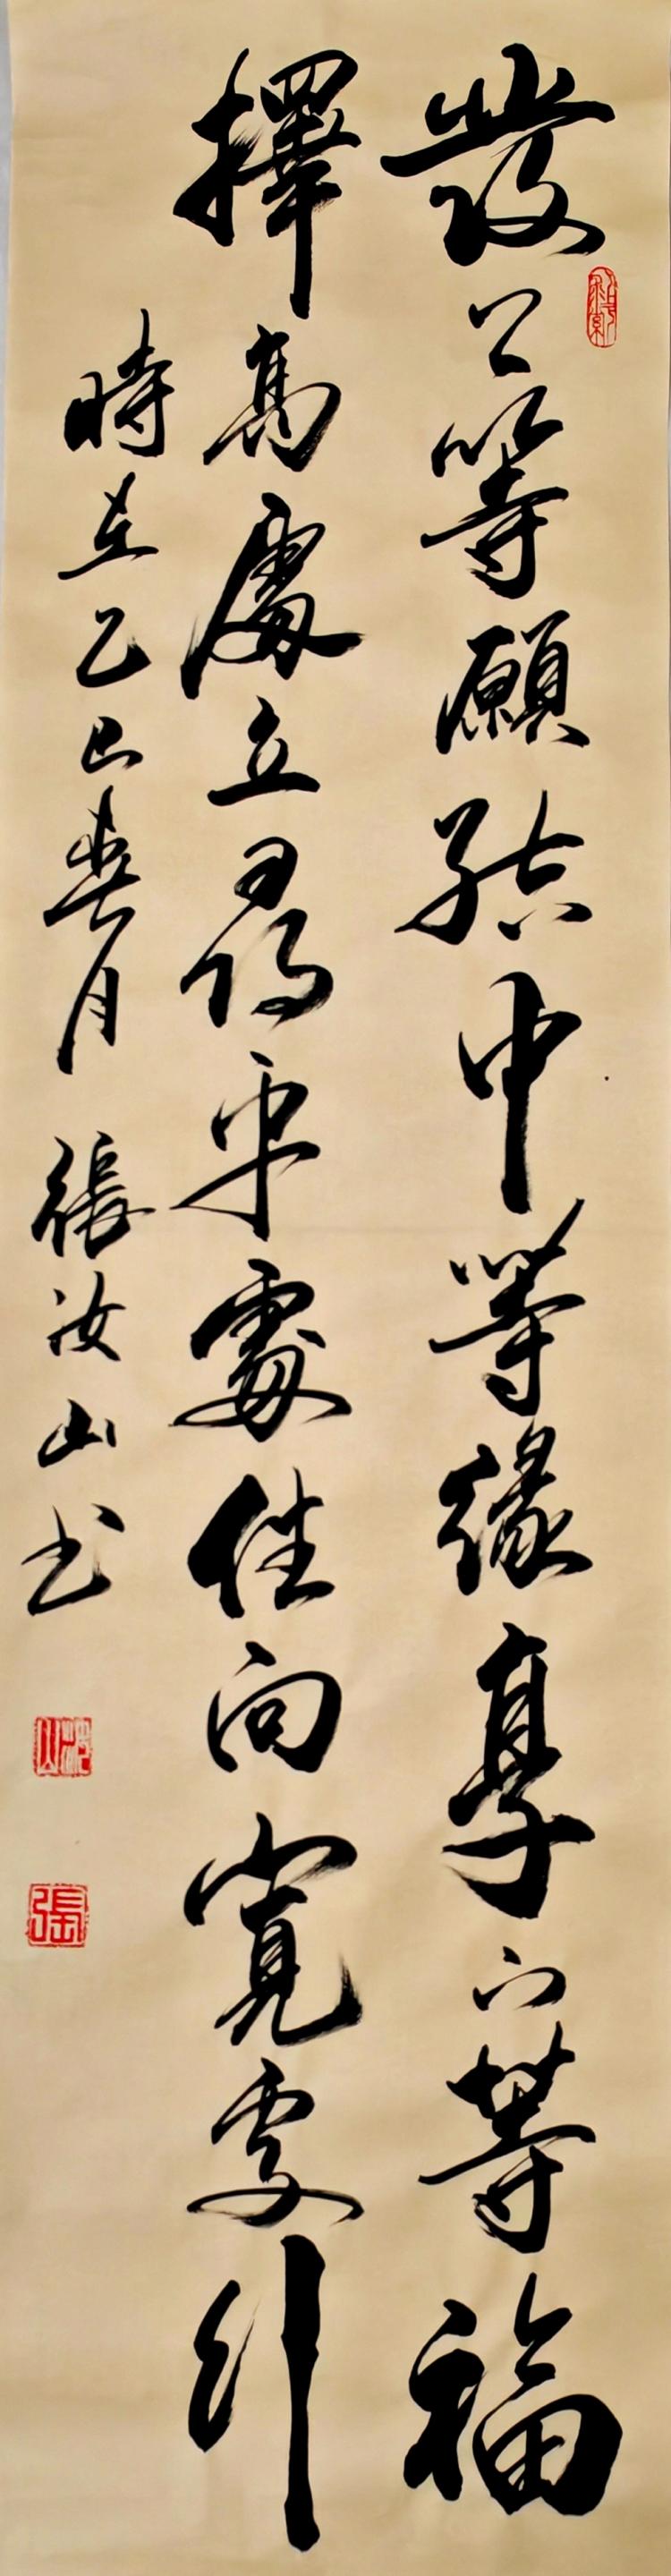 發上等願結中等緣享下等福
擇高處立尋平處住向寬處行
時在乙巳春月 張汝山书
汝山
張